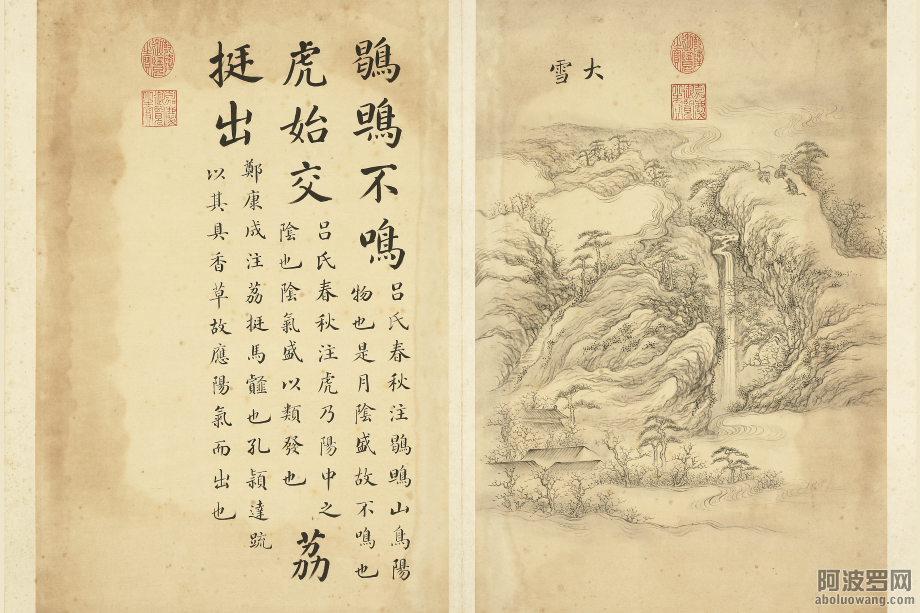 大雪
鶡鴠不鳴
呂氏春秋注鶡鴠山鳥陽
物也是月陰盛故不鳴也
虎始交
呂氏春秋注虎乃陽中之
陰也陰氣盛以類發也
荔
挺出
鄭康成注荔挺馬䪥也孔穎達疏
以其具香草故應陽氣而出也
阿波罗网
aboluowang.com